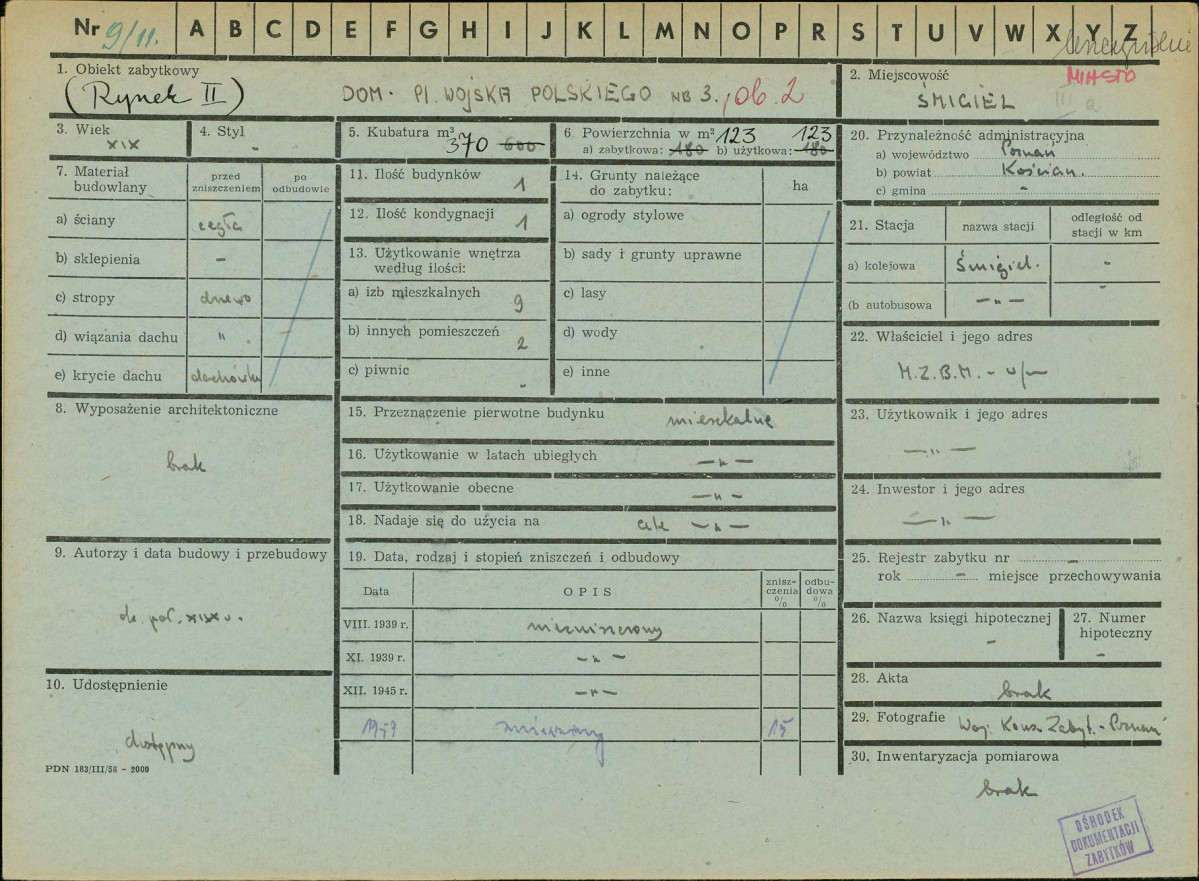 Nr 9/11. A B C D E F G H I J K L M N O P R S T U V W X Y Z
1. Obiekt zabytkowy
(Rynek II) DOM. Pl. WOJSKA POLSKIEGO NB 3., ob. 2
2. Miejscowość MIASTO
ŚMIGIEL III a
3. Wiek
XIX
4. Styl
-
5. Kubatura m³
370 600
6. Powierzchnia w m² 123 123
a) zabytkowa: 180 b) użytkowa: 180
20. Przynależność administracyjna
a) województwo Poznań
b) powiat Kościan.
c) gmina -
7. Materiał budowlany
przed zniszczeniem
po odbudowie
a) ściany cegła
b) sklepienia -
c) stropy drewno
d) wiązania dachu "
e) krycie dachu dachówka
8. Wyposażenie architektoniczne
brak
9. Autorzy i data budowy i przebudowy
dr. poł. XIX w.
10. Udostępnienie
dostępny
PDN 183/III/58 - 2000
11. Ilość budynków 1
12. Ilość kondygnacji 1
13. Użytkowanie wnętrza
według ilości:
a) izb mieszkalnych 9
b) innych pomieszczeń 2
c) piwnic -
14. Grunty należące
do zabytku:
ha
a) ogrody stylowe
b) sady i grunty uprawne
c) lasy
d) wody
e) inne
15. Przeznaczenie pierwotne budynku mieszkalne
16. Użytkowanie w latach ubiegłych — " —
17. Użytkowanie obecne — " —
18. Nadaje się do użycia na cele — " —
19. Data, rodzaj i stopień zniszczeń i odbudowy
Data
OPIS
znisz-
czenia
%
odbu-
dowa
%
VIII. 1939 r. niezniszczony
XI. 1939 r. — " —
XII. 1945 r. — " —
1959 zniszczony 15
21. Stacja
nazwa stacji
odległość od
stacji w km
a) kolejowa Śmigiel. -
(b autobusowa — " — -
22. Właściciel i jego adres
M.Z.B.M. -
23. Użytkownik i jego adres
— " —
24. Inwestor i jego adres
— " —
25. Rejestr zabytku nr -
rok - miejsce przechowywania
26. Nazwa księgi hipotecznej
-
27. Numer
hipoteczny
-
28. Akta
brak
29. Fotografie Woj. Kons. Zabyt. - Poznań
30. Inwentaryzacja pomiarowa
brak
OŚRODEK
DOKUMENTACJI
ZABYTKÓW